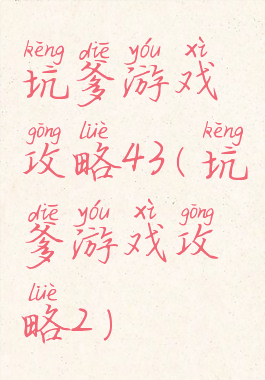 kēng diē yóu xì
坑爹游戏
gōng lüè kēng
攻略43(坑
diē yóu xì gōng
爹游戏攻
lüè
略2)